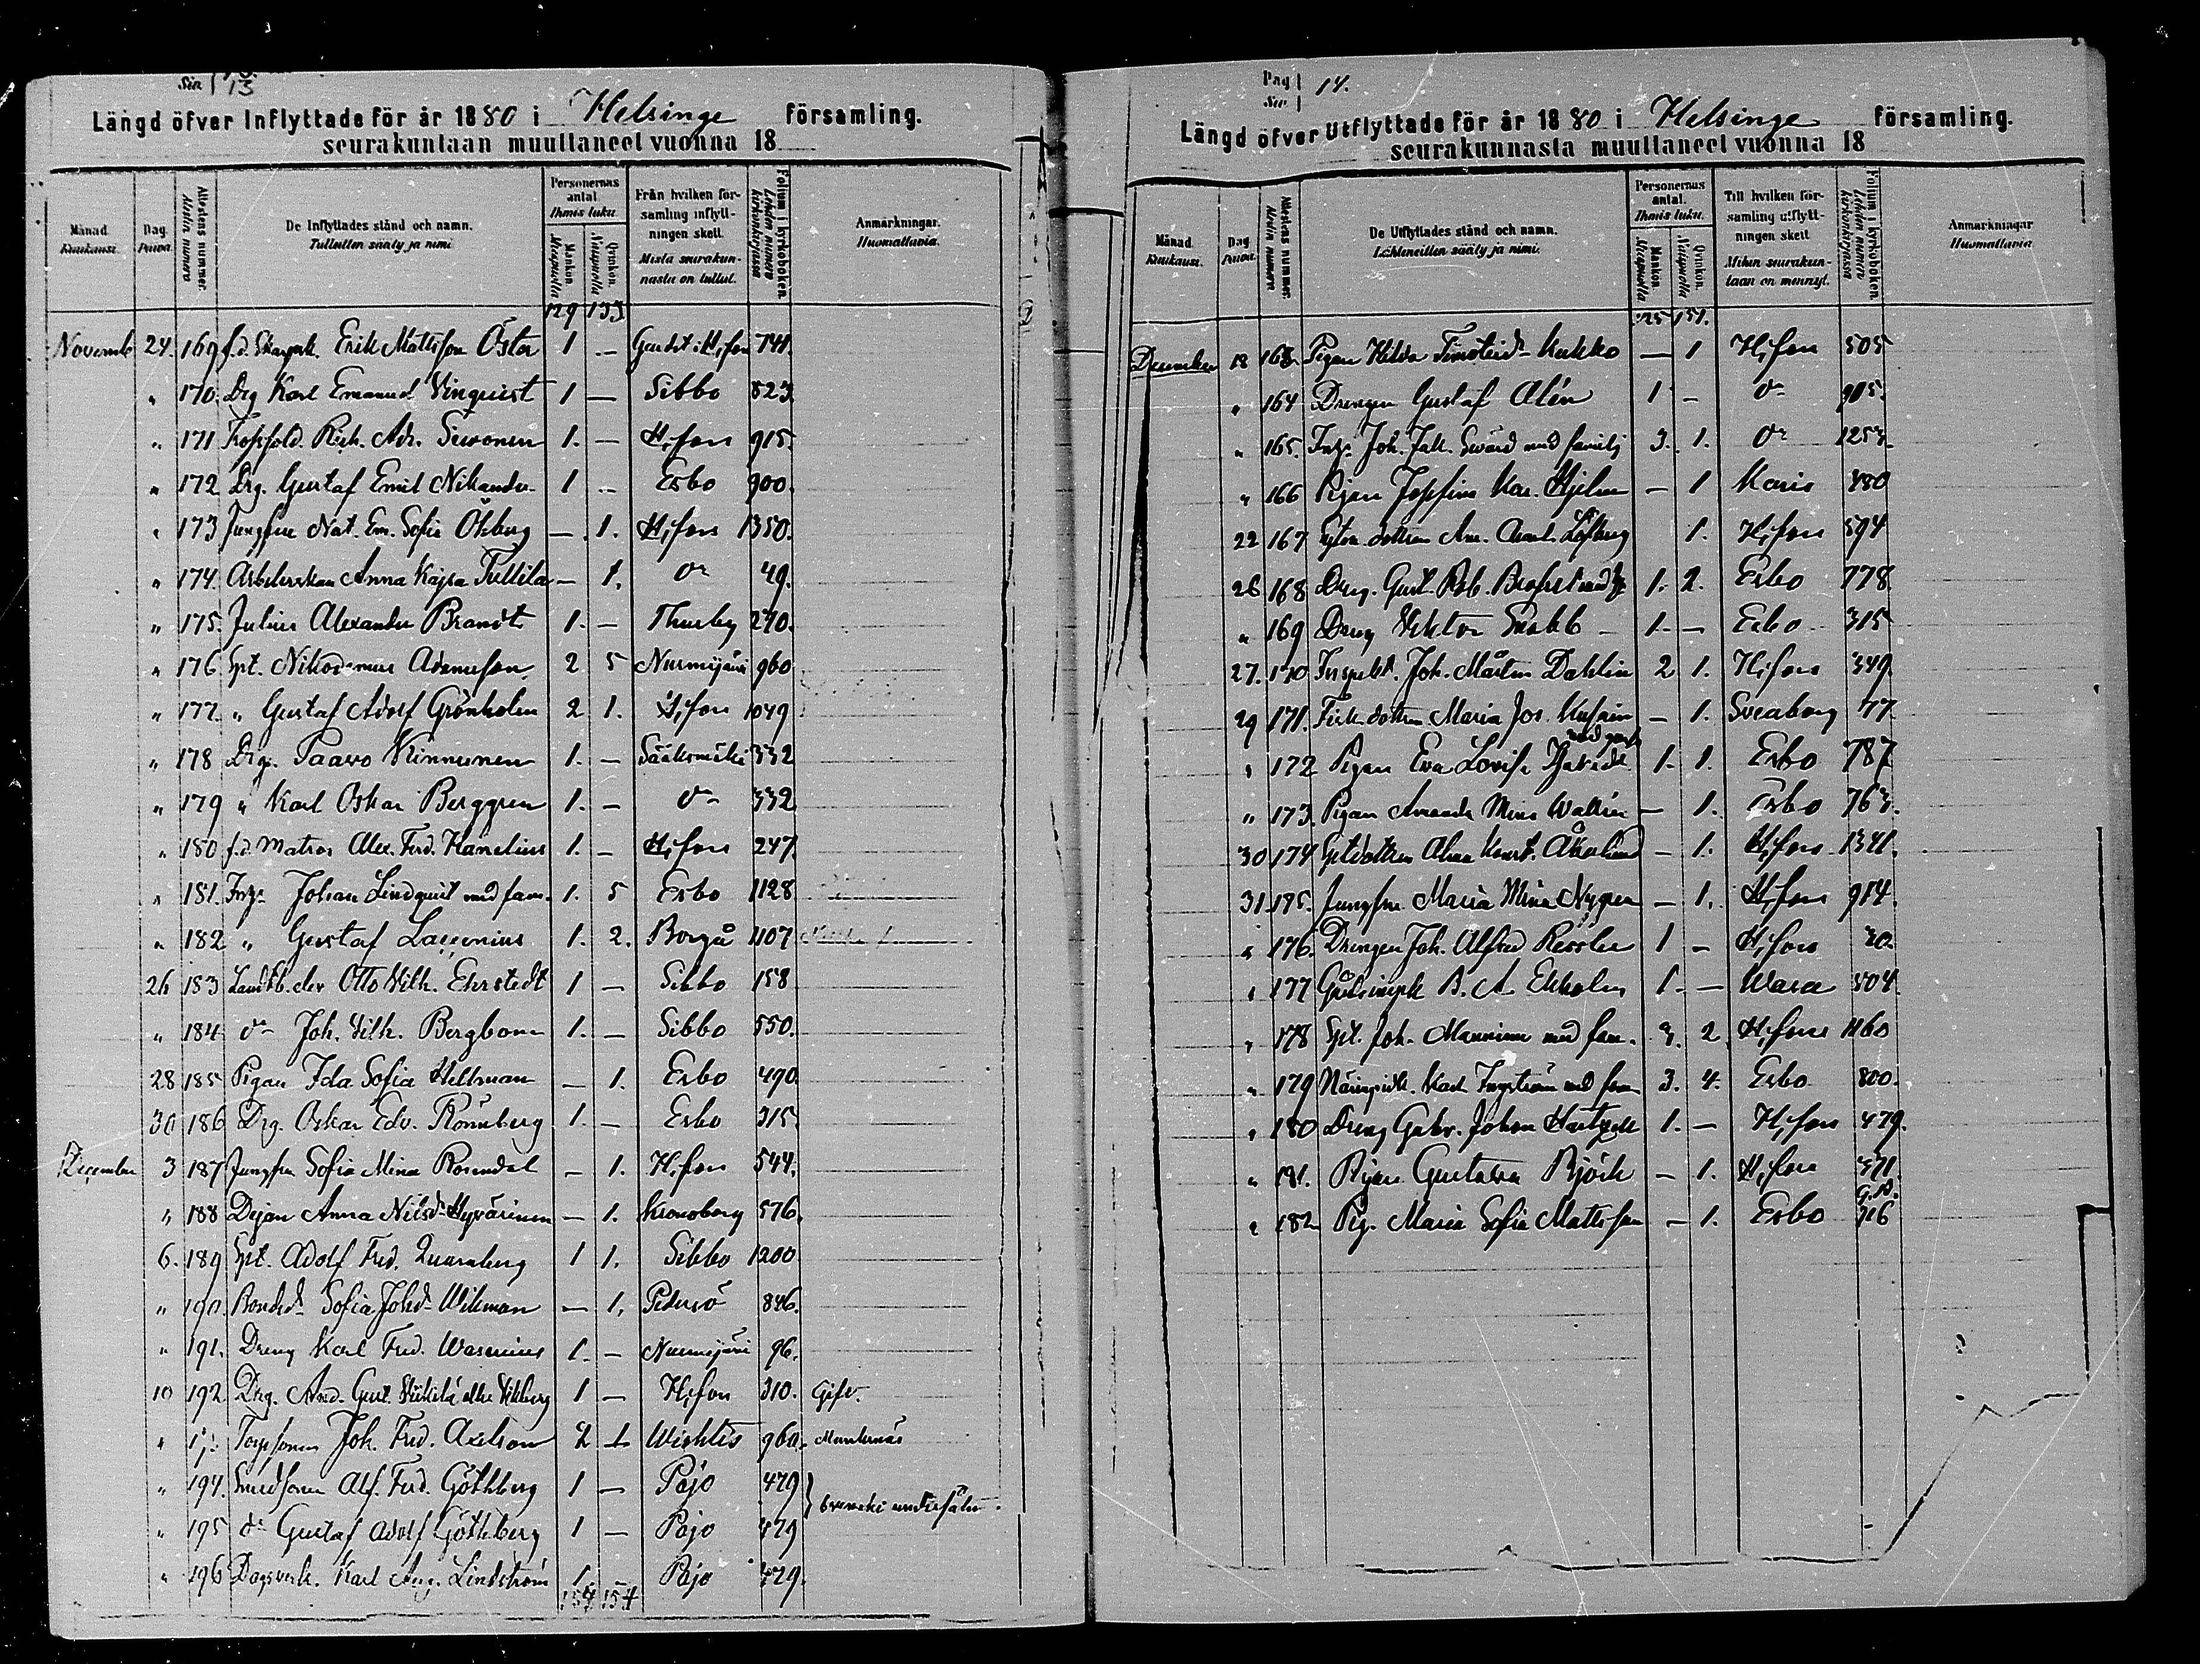 Sin 13
Längd öfver Inflyttade för år 1880 i Helsinge församling.
seurakuntaan muuttaneet vuonna 18
Månad. Kuukausi.
Dag. Päivä.
Attestens nummer. Alestin numero
De Inflyttades stånd och namn. Tulleitten sääty ja nimi
Personernas antal. Ihmis luku.
Mankön. Miespuolia
Qvinkön. Naispuolia
Från hvilken församling inflyttningen skett. Mistä seurakunnasta on tullut.
Folium i kyrkoboken. Lehden numero kirkonkirjassa
Anmärkningar. Huomattavia.
129 133
Novemb 24. 169 f.d. Skarpsk. Erik Mattsson Öster 1 — H,fors 741.
" 170. Drg Karl Emanuel Vinqvist 1 — Sibbo 523.
" 171 Rich. Adr. Suvonen 1. — H,fors 915.
" 172 Drg. Gustaf Emil Nikander 1 — Esbo 900.
" 173 Jungfru Nat. Em. Sofia Öhberg — 1. H,fors 1350.
" 174. Arbeterskan Anna Kajsa Tullila — 1. dn 49.
" 175. Julius Alexander Brandt 1. — Thusby 270.
" 176 Spt. Nikodemus Adamsson 2 5 Nurmijärvi 960
" 177. " Gustaf Adolf Grönholm 2 1. H,fors 1049
" 178 Drg. Paavo Kinnunen 1. — Sääksmäki 332
" 179 " Karl Oskar Berggren 1. — dn 332
" 180 f.d. Matros Alex. Ferd. Hanelius 1. — H,fors 247.
" 181. Inhs Johan Lindqvist med fam. 1. 5 Esbo 1128
" 182 " Gustaf Lassenius 1. 2. Borgå 1107
26 183 Landtb. elev Otto Vilh. Ehrstedt 1 — Sibbo 158
" 184. dn Joh. Vilh. Bergbom 1. — Sibbo 550.
28 185 Pigan Ida Sofia Hellman — 1. Esbo 490.
30 186 Drg. Oskar Edv. Rönnberg 1. — Esbo 315.
December 3 187 Jungfru Sofia Mina Rosendal — 1. H,fors 544.
" 188 Dejan Anna Nilsd. Hyvärinen — 1. Kronoborg 576.
6. 189 Spt. Adolf Fred. Qvarnberg 1 1. Sibbo 1200
" 190. Bonded. Sofia Johsd. Wikman — 1, Pedersö 846.
" 191. Dreng Karl Fred. Wasenius 1. — Nurmijärvi 96.
10 192. Drg. And. Gust. eller Vikberg 1 — H,fors 310. Gift.
" Torpsonen Joh. Fred. Axelson 2 1 Wichtis 960. Munknäs
" 194. Smedsonen Alf. Ferd. Göthberg 1 — Pojo 479
" 195 dn Gustaf Adolf Göthberg 1 — Pojo 479
" 196 Dagsverk. Karl Aug. Lindström 1 Pojo 479.
154 154
Pag Siv 14.
Längd öfver Utflyttade för år 1880 i Helsinge församling.
seurakunnasta muuttaneet vuonna 18
Månad. Kuukausi.
Dag Päivä.
Attestens nummer. Alestin numero
De Utflyttades stånd och namn. Lähteneitten sääty ja nimi.
Personernas antal. Ihmis luku.
Mankön. Miespuolia
Qvinkön. Naispuolia
Till hvilken församling utflyttningen skett Mihin seurakuntaan on mennyt.
Folium i kyrkoboken. Lehden numero kirkonkirjassa
Anmärkningar Huomattavia
125 151.
December 18 163. Pigan Hilda Kukko — 1 H,fors 505
" 164 Drengen Gustaf Alén 1 — dn 905.
" 165. Inhs Joh. Jak. Swärd med familj 3. 1. dn 1253.
" 166 Pigan Josefina Kar. Hjelm — 1 Karis 480
22 167 dottren Am. Charl. Löfberg 1. H,fors 594
26 168 Dreng. Gust. Rob. 1. 2. Esbo 778
" 169 Dreng Viktor Snabb — 1 — Esbo 315
27. 170 Inspekt. Joh. Mårten Dahlin 2 1. H,fors 349.
29 171. dottren Maria Jos. — 1. Sveaborg 47.
" 172 Pigan Eva Lovisa 1. 1. Esbo 787
" 173. Pigan Amanda Mina Wallén — 1. Esbo 763.
30 174 Sptdottren Alma Konst. Åkerlund — 1. H,fors 1341.
31. 175. Jungfru Maria Mina Nygren — 1. H,fors 914.
" 176. Drengen Joh. Alfred Ressler 1 — H,fors 20.
" 177 B. A. Ekholm 1. — Wasa 504.
" 178 Spt. Joh. Manninen med fam. 3. 2 H,fors 1160
" 179 Karl Ingström med fam 3. 4. Esbo 800.
" 180 Dreng Gabr. Johan 1. — H,fors 479.
" 181. Pigan Gustava Björk — 1. H,fors 371.
" 182 Pig. Maria Sofia Mattsson — 1. Esbo 716